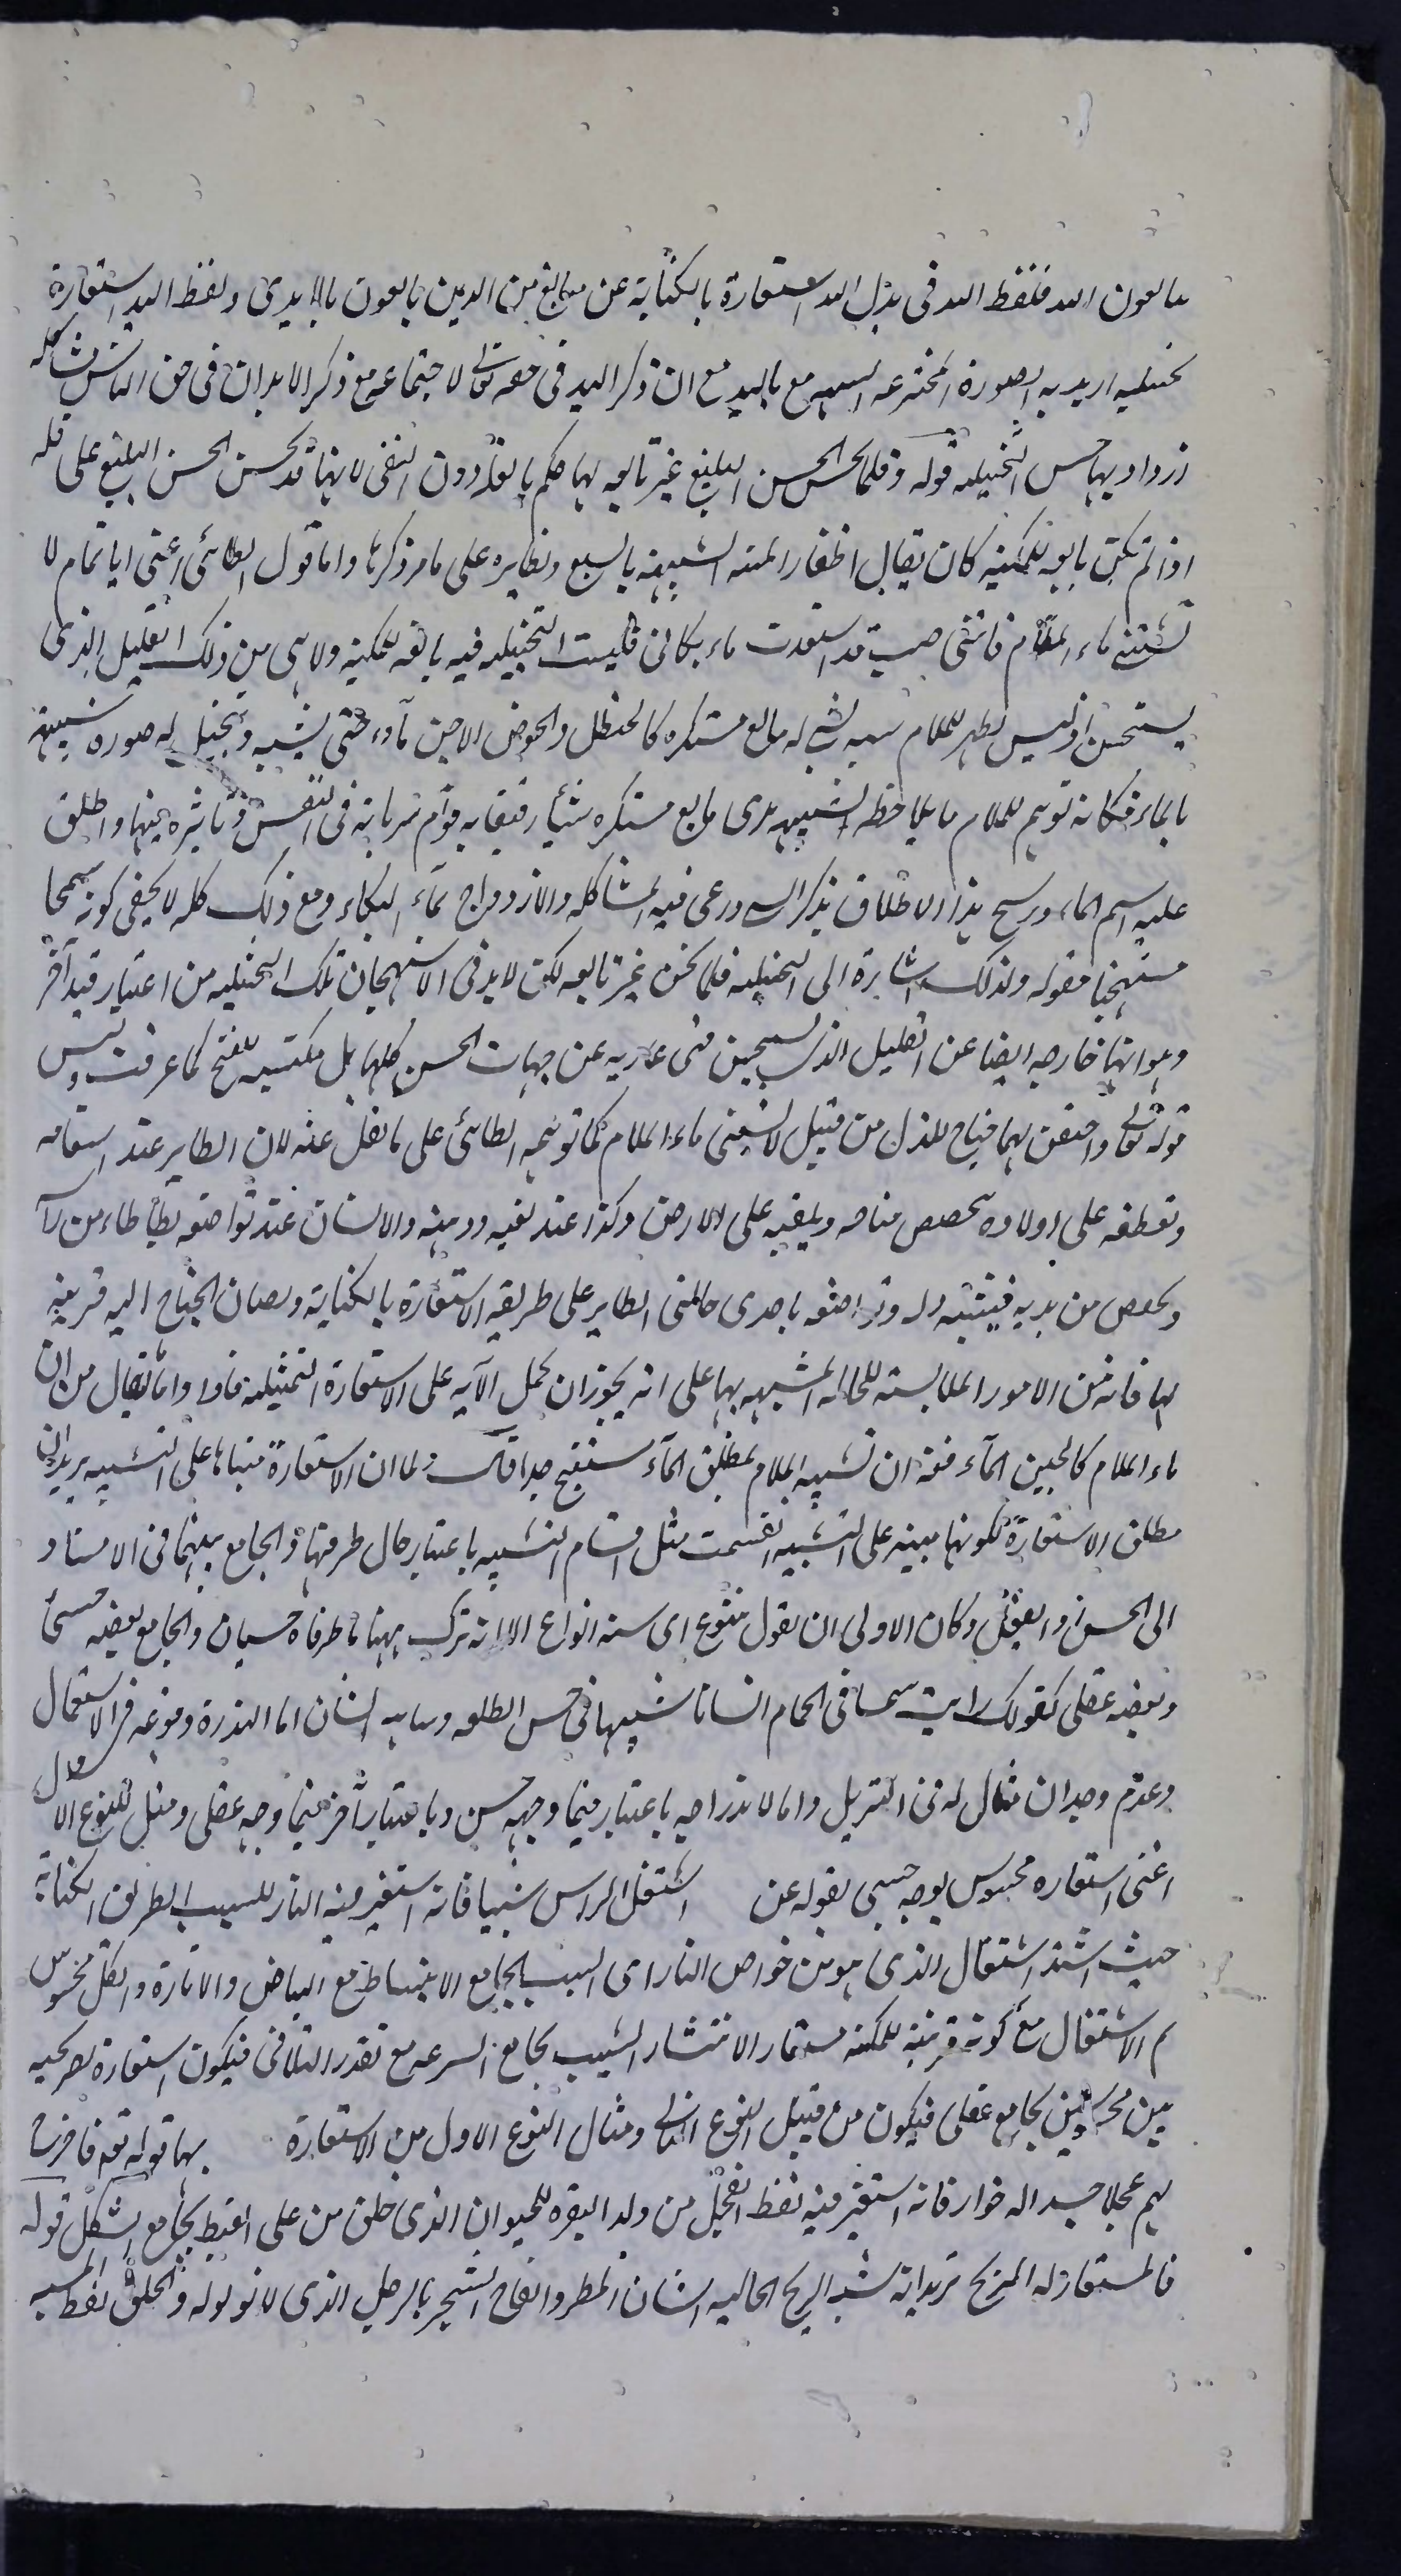 يبايعون الله فلفظ الله فى يدل الله استعارة بالكناية عن مبايع من الذين يبايعون بالايدى ولفظ اليد استعارة
تخييليه اريد به الصورة المخترعه الشبيهه مع باليد مع ان ذكر اليد فى حقه تعالى لاجتماعه مع ذكر الابدان فى حق الناس مشاكله
ازداد بها حسن التخييليه قوله وقلما تحسن الحسن البليغ غير تابعه لها حكم بالقلة دون النفى لانها قد تحسن الحسن البليغ على قله
اذا لم تكن تابعه للمكنيه كان يقال اظفار المنيه الشبيهة بالسبع ونظايره على ما مر ذكرها واما قول الطائى اعنى ابا تمام لا
تسقنى ماء الملام فاننى صب قد استعذبت ماء بكائى فليست التخييليه فيه تابعه للمكنيه ولا هى من ذلك القليل الذى
يستحسن اذ ليس يظهر للملام شبه بشئ له مايع مستكره كالحنظل والحوض الآجن ماؤه حتى يشبه وتخيل له صورة شبيهة
بالماء فكانه توهم للملام بملاحظة الشبيهه لدى مايع مستكره شيئا رقيقا به قوام سرايته فى النفس وتاثيره فيها واطلق
عليه اسم الماء ورشح هذا الاطلاق بذكر السقى ورعى فيه المشاكله والازدواج بماء البكاء ومع ذلك كله لا يخفى كونه سمجا
مستهجنا فقوله ولذلك اشارة الى التخييليه قلما تحسن غير تابعه لكن لابد فى الاستهجان تلك التخييليه من اعتبار قيد آخر
وهو انها خارجه ايضا عن القليل الذى يستحسن فهى عاريه عن جهات الحسن كلها بل مكتسيه للقبح كما عرفت وليس
قوله تعالى واخفض لهما جناح الذل من قبيل لا تسقنى ماء الملام كما توهمه الطائى على ما نقل عنه لان الطاير عند اشفاقه
وتعطفه على اولاده يخفض جناحه ويلقيه على الارض وكذا عند تعبه ووهنه والانسان عند تواضعه يطأطاء من راسه
ويخفض من يديه فيشبه ذله وتواضعه باحدى حالتى الطاير على طريقه الاستعارة بالكناية ويضاف الجناح اليه قرينه
لها فانه من الامور الملابسه للحاله المشبهه بها على انه يجوز ان يحمل الآيه على الاستعارة التمثيليه قوله واما يقال من ان
ماء الملام كالجين الماء ففيه ان تشبيه الملام بمطلق الماء مستقبح جدا قال ولما ان الاستعارة مبناها على التشبيه يريد ان
مطلق الاستعارة لكونها مبنيه على التشبيه انقسمت مثل اقسام التشبيه باعتبار حال طرفيها والجامع بينهما فى الاستناد
الى الحس والعقل وكان الاولى ان يقول متنوع اى سته انواع الا انه ترك ههنا ما طرفاه حسيان والجامع بعضه حسى
وبعضه عقلى كقولك رايت شمسا فى الحمام انسانا شبيها فى حسن الطلعه ونباهه الشان اما الندرة وقوعه فى الاستعمال
وعدم وجدان مثال له فى التنزيل واما لاندراجه باعتبار فيما وجهه حسى وباعتبار آخر فيما وجهه عقلى ومثل للنوع الاول
اعنى استعاره محسوس بوجه حسى بقوله عن اشتعل الراس شيبا فانه استعير فيه النار للشيب بطريق الكناية
حيث اسند اشتعال الذى هو من خواص النار الى الشيب بجامع الانبساط مع البياض والانارة والكل محسوس
ثم الاشتعال مع كونه قرينة للمكنيه مستعار الانتشار الشيب بجامع السرعه مع تعذر التلافى فيكون استعارة تصريحيه
بين محسوسين بجامع عقلى فيكون من قبيل النوع الثانى ومثال النوع الاول من الاستعارة بها قوله تعالى فاخرج
لهم عجلا جسدا له خوار فانه استعير فيه لفظ العجل من ولد البقره للحيوان الذى خلق من حلى القبط بجامع الشكل قوله
فالمستعار له الريح تريد انه شبه الريح الحاليه انشاء المطر والقاح الشجر بالرجل الذى لا تولد له واطلق لفظ المشبه